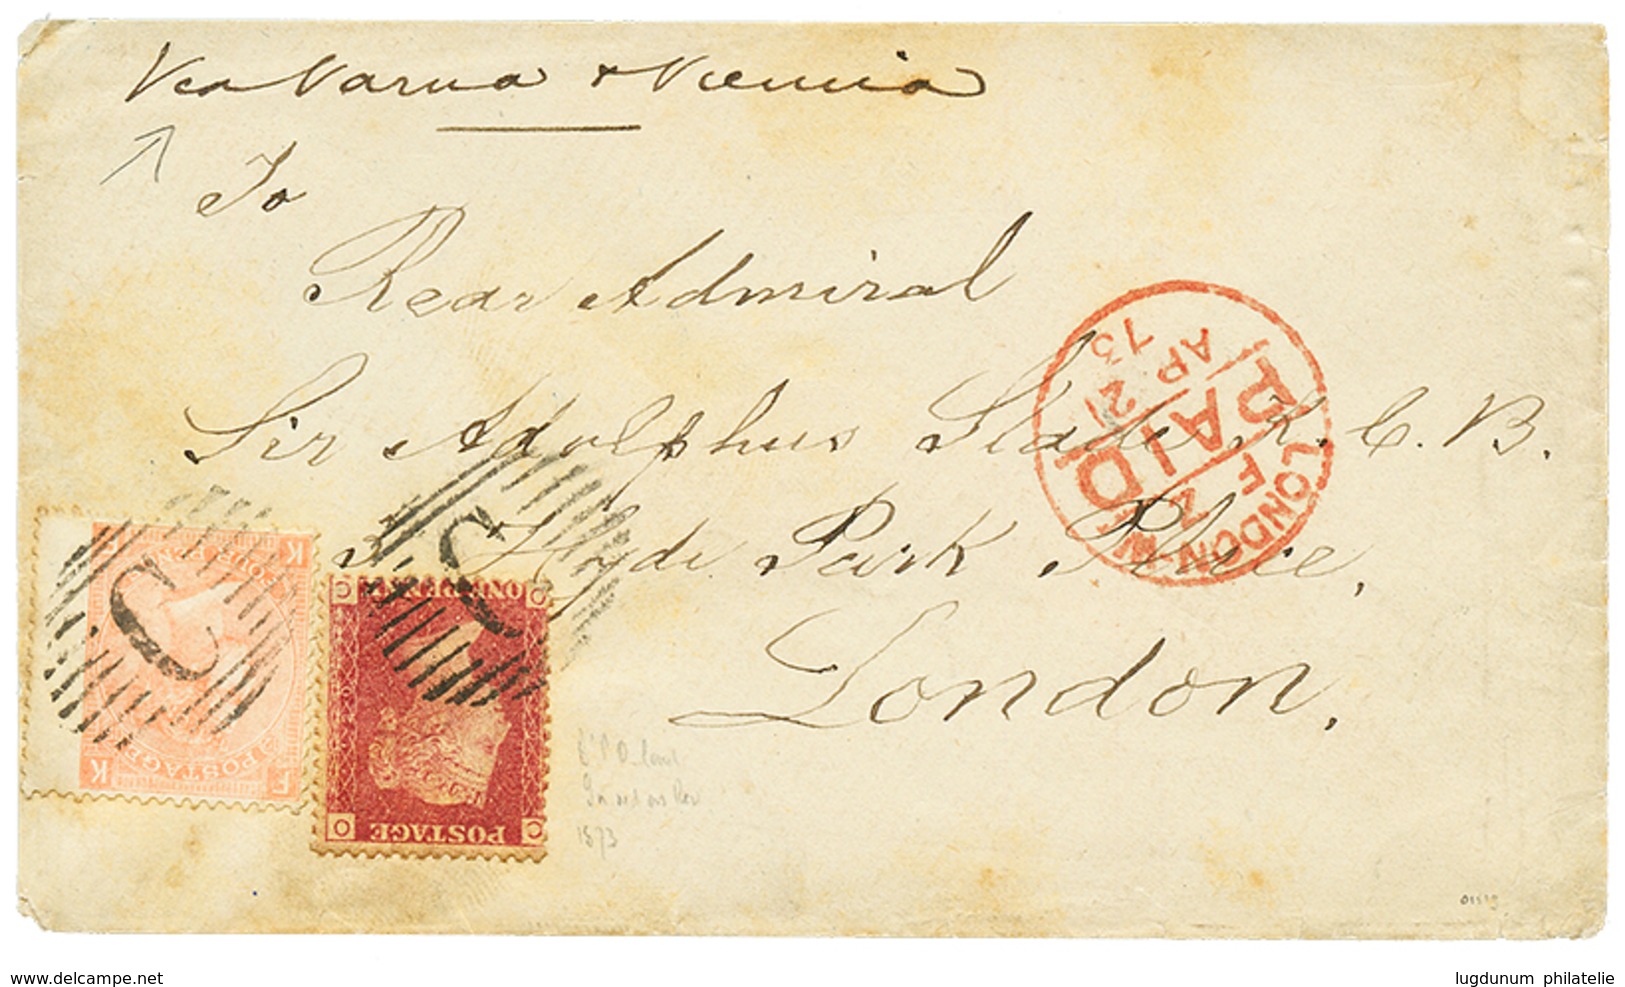 Via Varna & Vienna
To
Rear Admiral
Sir Adolphus Slade K.C.B.
Hyde Park Place,
London.
LONDON-W
Z F
PAID
21 AP
73
C
C
K F
FOUR PENCE
POSTAGE
F K
C O
ONE PENNY
POSTAGE
O C
1873
01519
www.delcampe.net
lugdunum philatelie